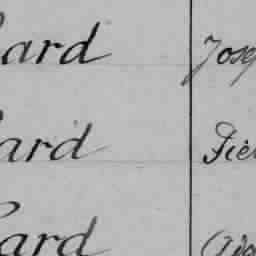 ard Jos
ard Pie
ard